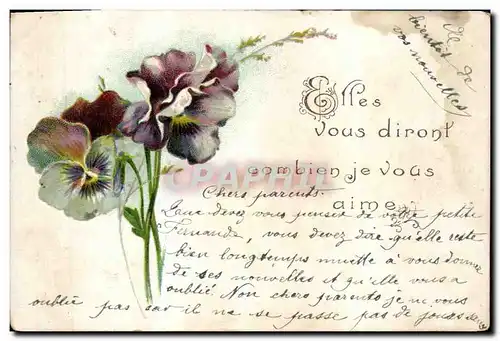 Elles
vous diront
combien je vous
aime
et de
bientôt
vos nouvelles
Chers parents:
Que devez vous penser de votre petite
Fernande, vous devez dire qu'elle reste
bien longtemps muette à vous donner
de ses nouvelles et qu'elle vous a
oublié. Non chers parents je ne vous
oublie pas car il ne se passe pas de jours